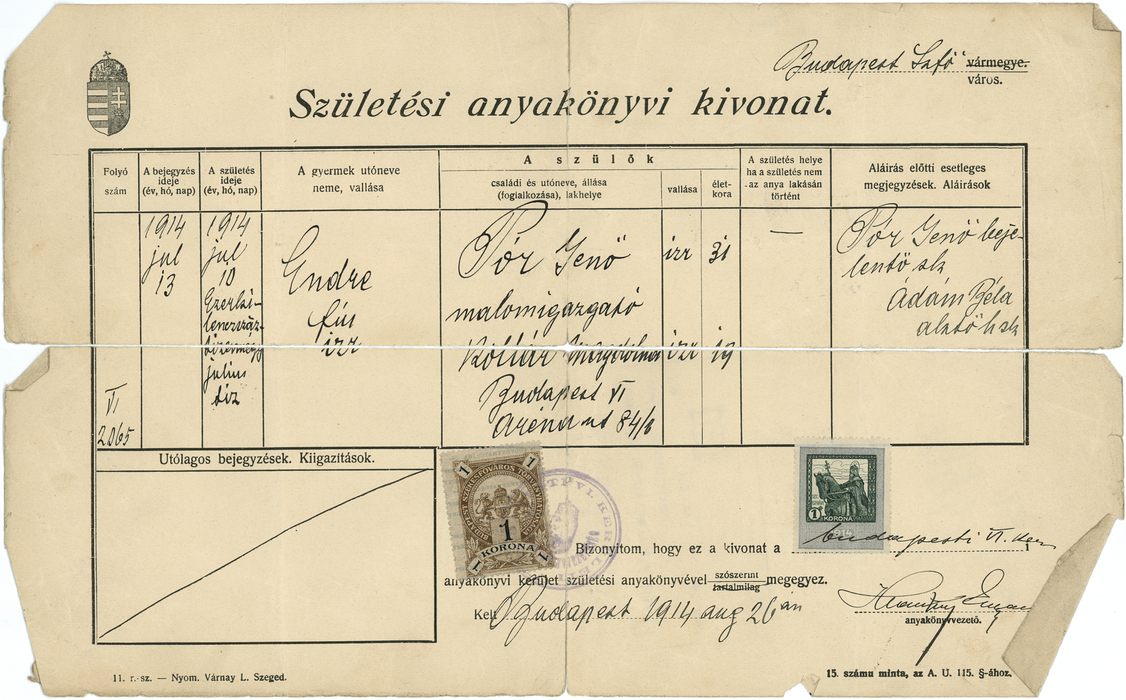 Budapest Szfő vármegye.
város.
Születési anyakönyvi kivonat.
Folyó szám
A bejegyzés ideje (év, hó, nap)
A születés ideje (év, hó, nap)
A gyermek utóneve neme, vallása
A szülők
családi és utóneve, állása (foglalkozása), lakhelye
vallása
életkora
A születés helye ha a születés nem az anya lakásán történt
Aláírás előtti esetleges megjegyzések. Aláírások
VI
2065
1914
jul
13
1914
jul
10
Ezerki-
lenczszáz-
tizennégy
julius
tiz
Endre
fiu
izr
Pór Jenő izr 31
malomigazgató
Kollár Magdolna izr 19
Budapest VI
Aréna ut 84/b
—
Pór Jenő beje-
lentő sk
Ádám Béla
h sk
Utólagos bejegyzések. Kiigazítások.
1 1
BUDAPEST SZÉKES-FŐVÁROS
1
KORONA
1 1
1 KORONA
1914
Bizonyítom, hogy ez a kivonat a budapesti VI. ker
anyakönyvi kerület születési anyakönyvével szószerint tartalmilag megegyez.
Kelt Budapest 1914 aug 26 án
anyakönyvvezető.
11. r.-sz. — Nyom. Várnay L. Szeged.
15. számu minta, az A. U. 115. §-ához.